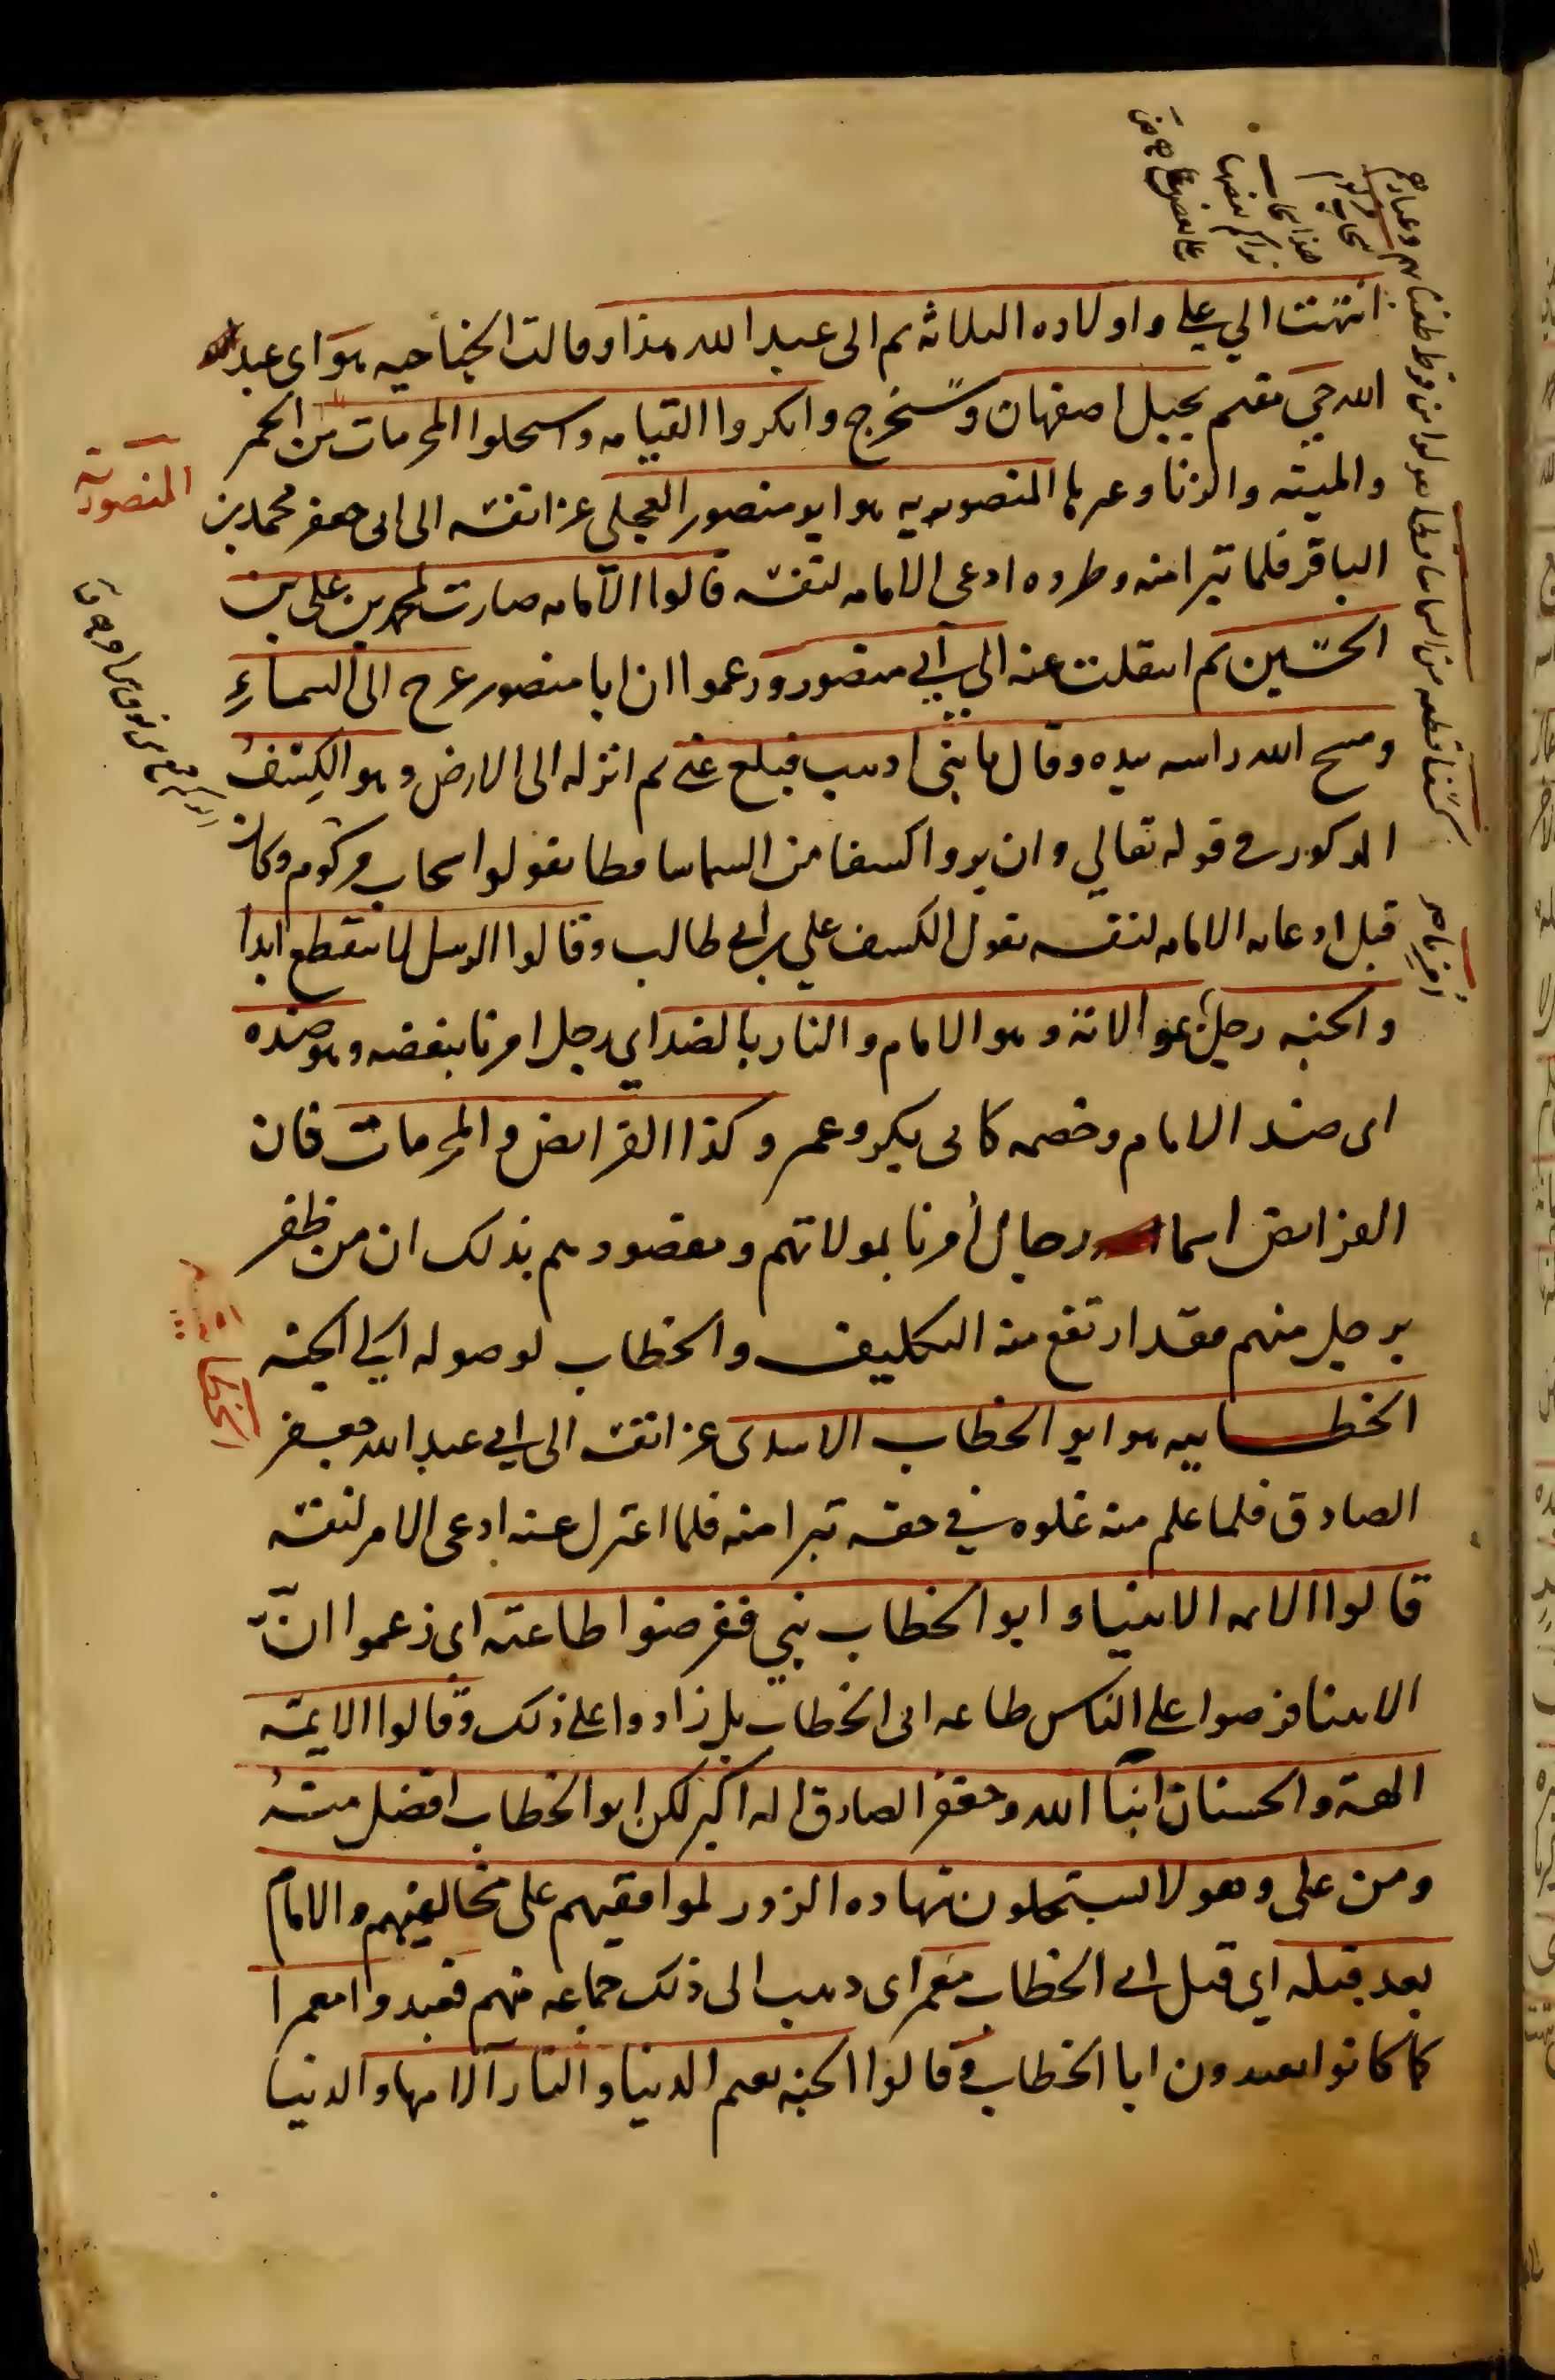 انتهت الي علي واولاده الثلاثه ثم الى عبد الله هذا وقالت الجناحيه هو اى عبد
الله حي مقيم بجبل اصفهان وسيخرج وانكروا القيامه واستحلوا المحرمات من الخمر
والميته والزنا وغيرها المنصوريه هو ابو منصور العجلي عزا نفسه الى ابى جعفر محمد بن
المنصوريه
الباقر فلما تبرا منه وطرده ادعى الامامه لنفسه قالوا الامامه صارت لمحمد بن على بن
الحسين ثم انتقلت عنه الى ابي منصور وزعموا ان ابا منصور عرج الى السماء
ومسح الله راسه بيده وقال يا بني اذهب فبلغ عني ثم انزله الى الارض وهو الكسف
المذكور في قوله تعالي وان يروا كسفا من السما ساقطا يقولوا سحاب مركوم وكان
قبل ادعائه الامامه لنفسه يقول الكسف علي بن ابي طالب وقالوا الرسل لا ينقطع ابدا
والجنه رجل امرنا بموالاته وهو الامام والنار بالضد اي رجل امرنا ببغضه وهو ضده
اى ضد الامام وخصمه كابى بكر وعمر وكذا الفرايض والمحرمات فان
الفرايض اسما رجال أمرنا بموالاتهم ومقصودهم بذلك ان من ظفر
برجل منهم فقد ارتفع منه التكليف والخطاب لوصوله الي الجنه
الخطابيه هو ابو الخطاب الاسدى عزا نفسه الى ابي عبد الله جعفر
الخطابيه
الصادق فلما علم منه غلوه في حقه تبرا منه فلما اعتزل عنه ادعى الامر لنفسه
قالوا الائمه الانبياء وابو الخطاب نبي ففرضوا طاعته اى زعموا انّ
الانبيا فرضوا على الناس طاعه ابى الخطاب بل زادوا على ذلك وقالوا الايمة
الهة والحسنان ابنا الله وجعفر الصادق اله اكبر لكن ابو الخطاب افضل منه
ومن على وهولا يستحلون شهاده الزور لموافقيهم على مخالفيهم والامام
بعد قتله اي قتل ابى الخطاب معمر اى ذهب الى ذلك جماعه منهم فعبدوا معمرا
كما كانوا يعبدون ابا الخطاب وقالوا الجنه نعيم الدنيا والنار آلامها والدنيا